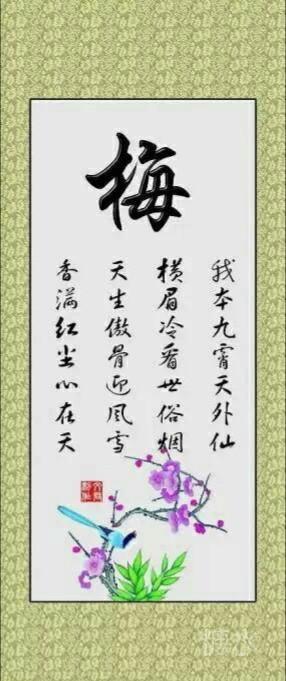 梅
我本九霄天外仙
横眉冷看世俗烟
天生傲骨迎风雪
香满红尘心在天